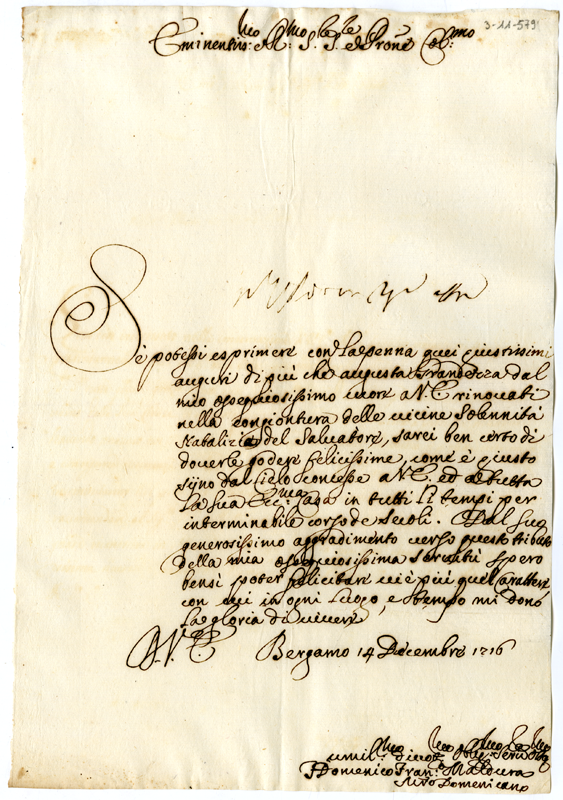 3-11-579
Eminentis:mo R:mo S.re S.re e Prone Col:mo
Se potessi esprimere con la penna quei giustissimi
auguri di più che augusta Grandezza dal
mio ossequiosissimo cuore a V.E. rinouati
nella congiontura delle uicine Solennità
Natalizie del Saluatore, sarei ben certo di
douerle godere felicissime, come è giusto
sijno dal Cielo concesse a V.E. ed a tutta
la sua Ecc:ma Casa in tutti li tempi per
interminabile corso de Secoli. Dal suo
generosissimo aggradimento uerso questo tributo
della mia ossequiosissima seruitù spero
bensì poter felicitare uie più quel carattere
con cui in ogni luogo, e tempo mi dono
la gloria di uiuere
D. V. E.
Bergamo 14 Decembre 1716
Umil:mo diuot:mo oblig:mo Seru:re
Domenico Fran:co
Domenicano